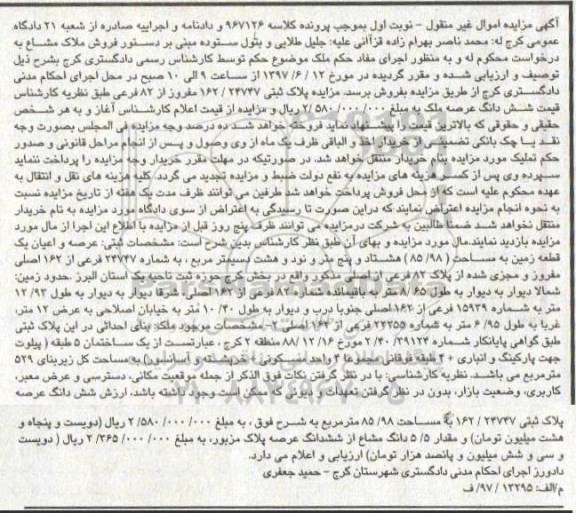 آگهی مزایده اموال غیر منقول – نوبت اول بموجب پرونده کلاسه ۹۶۷۱۲۶ و دادنامه و اجراییه صادره از شعبه ۲۱ دادگاه
عمومی کرج له: محمد ناصر بهرام زاده قزآنی علیه: جلیل طلایی و بتول ستوده مبنی بر دستور فروش ملاک مشاع به
درخواست محکوم له و به منظور اجرای مفاد حکم ملک موضوع حکم توسط کارشناس رسمی دادگستری کرج بشرح ذیل
توصیف و ارزیابی شده و مقرر گردیده در مورخ ۱۲ / ۶ / ۱۳۹۷ از ساعت ۹ الی ۱۰ صبح در محل اجرای احکام مدنی
دادگستری کرج از طریق مزایده بفروش برسد. مزایده پلاک ثبتی ۱۶۲ / ۲۴۷۴۷ مفروز از ۸۲ فرعی طبق نظریه کارشناس
قیمت شش دانگ عرصه ملک به مبلغ ۰۰۰/ ۰۰۰/ ۵۸۰ /۲ ریال و مزایده از قیمت اعلام کارشناس آغاز و به هر شخص
حقیقی و حقوقی که بالاترین قیمت را پیشنهاد نماید فروخته خواهد شد ده درصد وجه مزایده فی المجلس بصورت وجه
نقد یا چک بانکی تضمینی از خریدار اخذ و الباقی ظرف یک ماه از وی وصول و پس از انجام مراحل قانونی و صدور
حکم تملیک مورد مزایده بنام خریدار منتقل خواهد شد. در صورتیکه در مهلت مقرر خریدار وجه مزایده را پرداخت ننماید
سپرده وی پس از کسر هزینه های مزایده به نفع دولت ضبط و مزایده تجدید می گردد. کلیه هزینه های نقل و انتقال به
عهده محکوم علیه است که از محل فروش پرداخت خواهد شد طرفین می توانند ظرف مدت یک هفته از تاریخ مزایده نسبت
به نحوه انجام مزایده اعتراض نمایند که دراین صورت تا رسیدگی به اعتراض از سوی دادگاه مورد مزایده به نام خریدار
منتقل نخواهد شد ضمنا طالبین به شرکت درمزایده می توانند ظرف پنج روز قبل از مزایده با اطلاع این اجرا از مال مورد
مزایده بازدید نمایند.مال مورد مزایده و بهای آن طبق نظر کارشناس بدین شرح است: مشخصات ثبتی: عرصه و اعیان یک
قطعه زمین به مساحت ( ۹۸ / ۸۵ ) هشتاد و پنج متر و نود و هشت دسیمتر مربع ، به شماره ۲۴۷۴۷ فرعی از ۱۶۲ اصلی
مفروز و مجزی شده از پلاک ۸۲ فرعی از اصلی مذکور واقع در بخش کرج حوزه ثبت ناحیه یک استان البرز .حدود زمین:
شمالا دیوار به دیوار به طول ۶۵ / ۸ متر به باقیمانده شماره ۸۲ فرعی از ۱۶۲ اصلی، شرقا دیوار به دیوار به طول ۹۳ / ۱۲
متر به شماره ۱۵۹۳۹ فرعی از ۱۶۲ اصلی جنوبا درب و دیوار به طول ۴۰ / ۱۰ متر به خیابان اصلاحی به عرض ۱۲ متر،
غربا به طول ۹۵ / ۶ متر به شماره ۲۲۳۵۵ فرعی از ۱۶۲ اصلی ۲- مشخصات موجود ملک: بنای احداثی در این پلاک ثبتی
طبق گواهی پایانکار شماره ۳۹۱۲۴ / ۴۰ /۲ مورخ ۱۶ /۱۲ /۸۸ منطقه ۲ کرج ، عبارتست از یک ساختمان ۵ طبقه ( پیلوت
جهت پارکینگ و انباری + ۴ طبقه فوقانی جمعا ۴ واحد مسکونی با خرپشته و آسانسور) به مساحت کل زیربنای ۵۲۹
مترمربع می باشد. نظریه کارشناسی: با در نظر گرفتن نکات فوق الذکر از جمله موقعیت مکانی، دسترسی و عرض معبر،
کاربری، وضعیت بازار، بدون در نظر گرفتن تعهدات و دیونی که ممکن است وجود داشته باشد، ارزش شش دانگ عرصه
پلاک ثبتی ۲۴۷۴۷ / ۱۶۲ به مساحت ۹۸ /۸۵ مترمربع به شرح فوق ، به مبلغ ۰۰۰/ ۰۰۰/ ۵۸۰ /۲ ریال (دویست و پنجاه و
هشت میلیون تومان) و مقدار ۵/۵ دانگ مشاع از ششدانگ عرصه پلاک مزبور، به مبلغ ۰۰۰/ ۰۰۰/ ۳۶۵ /۲ ریال ( دویست
و سی و شش میلیون و پانصد هزار تومان) ارزیابی و اعلام می دارد.
دادورز اجرای احکام مدنی دادگستری شهرستان کرج – حمید جعفری
م/الف: ۱۳۲۹۵ / ۹۷/ ف